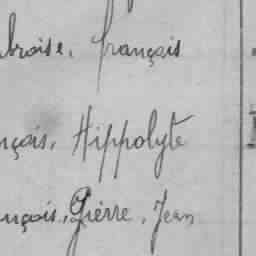 broise, françois
nçois, Hippolyte
nçois, Pierre, Jean